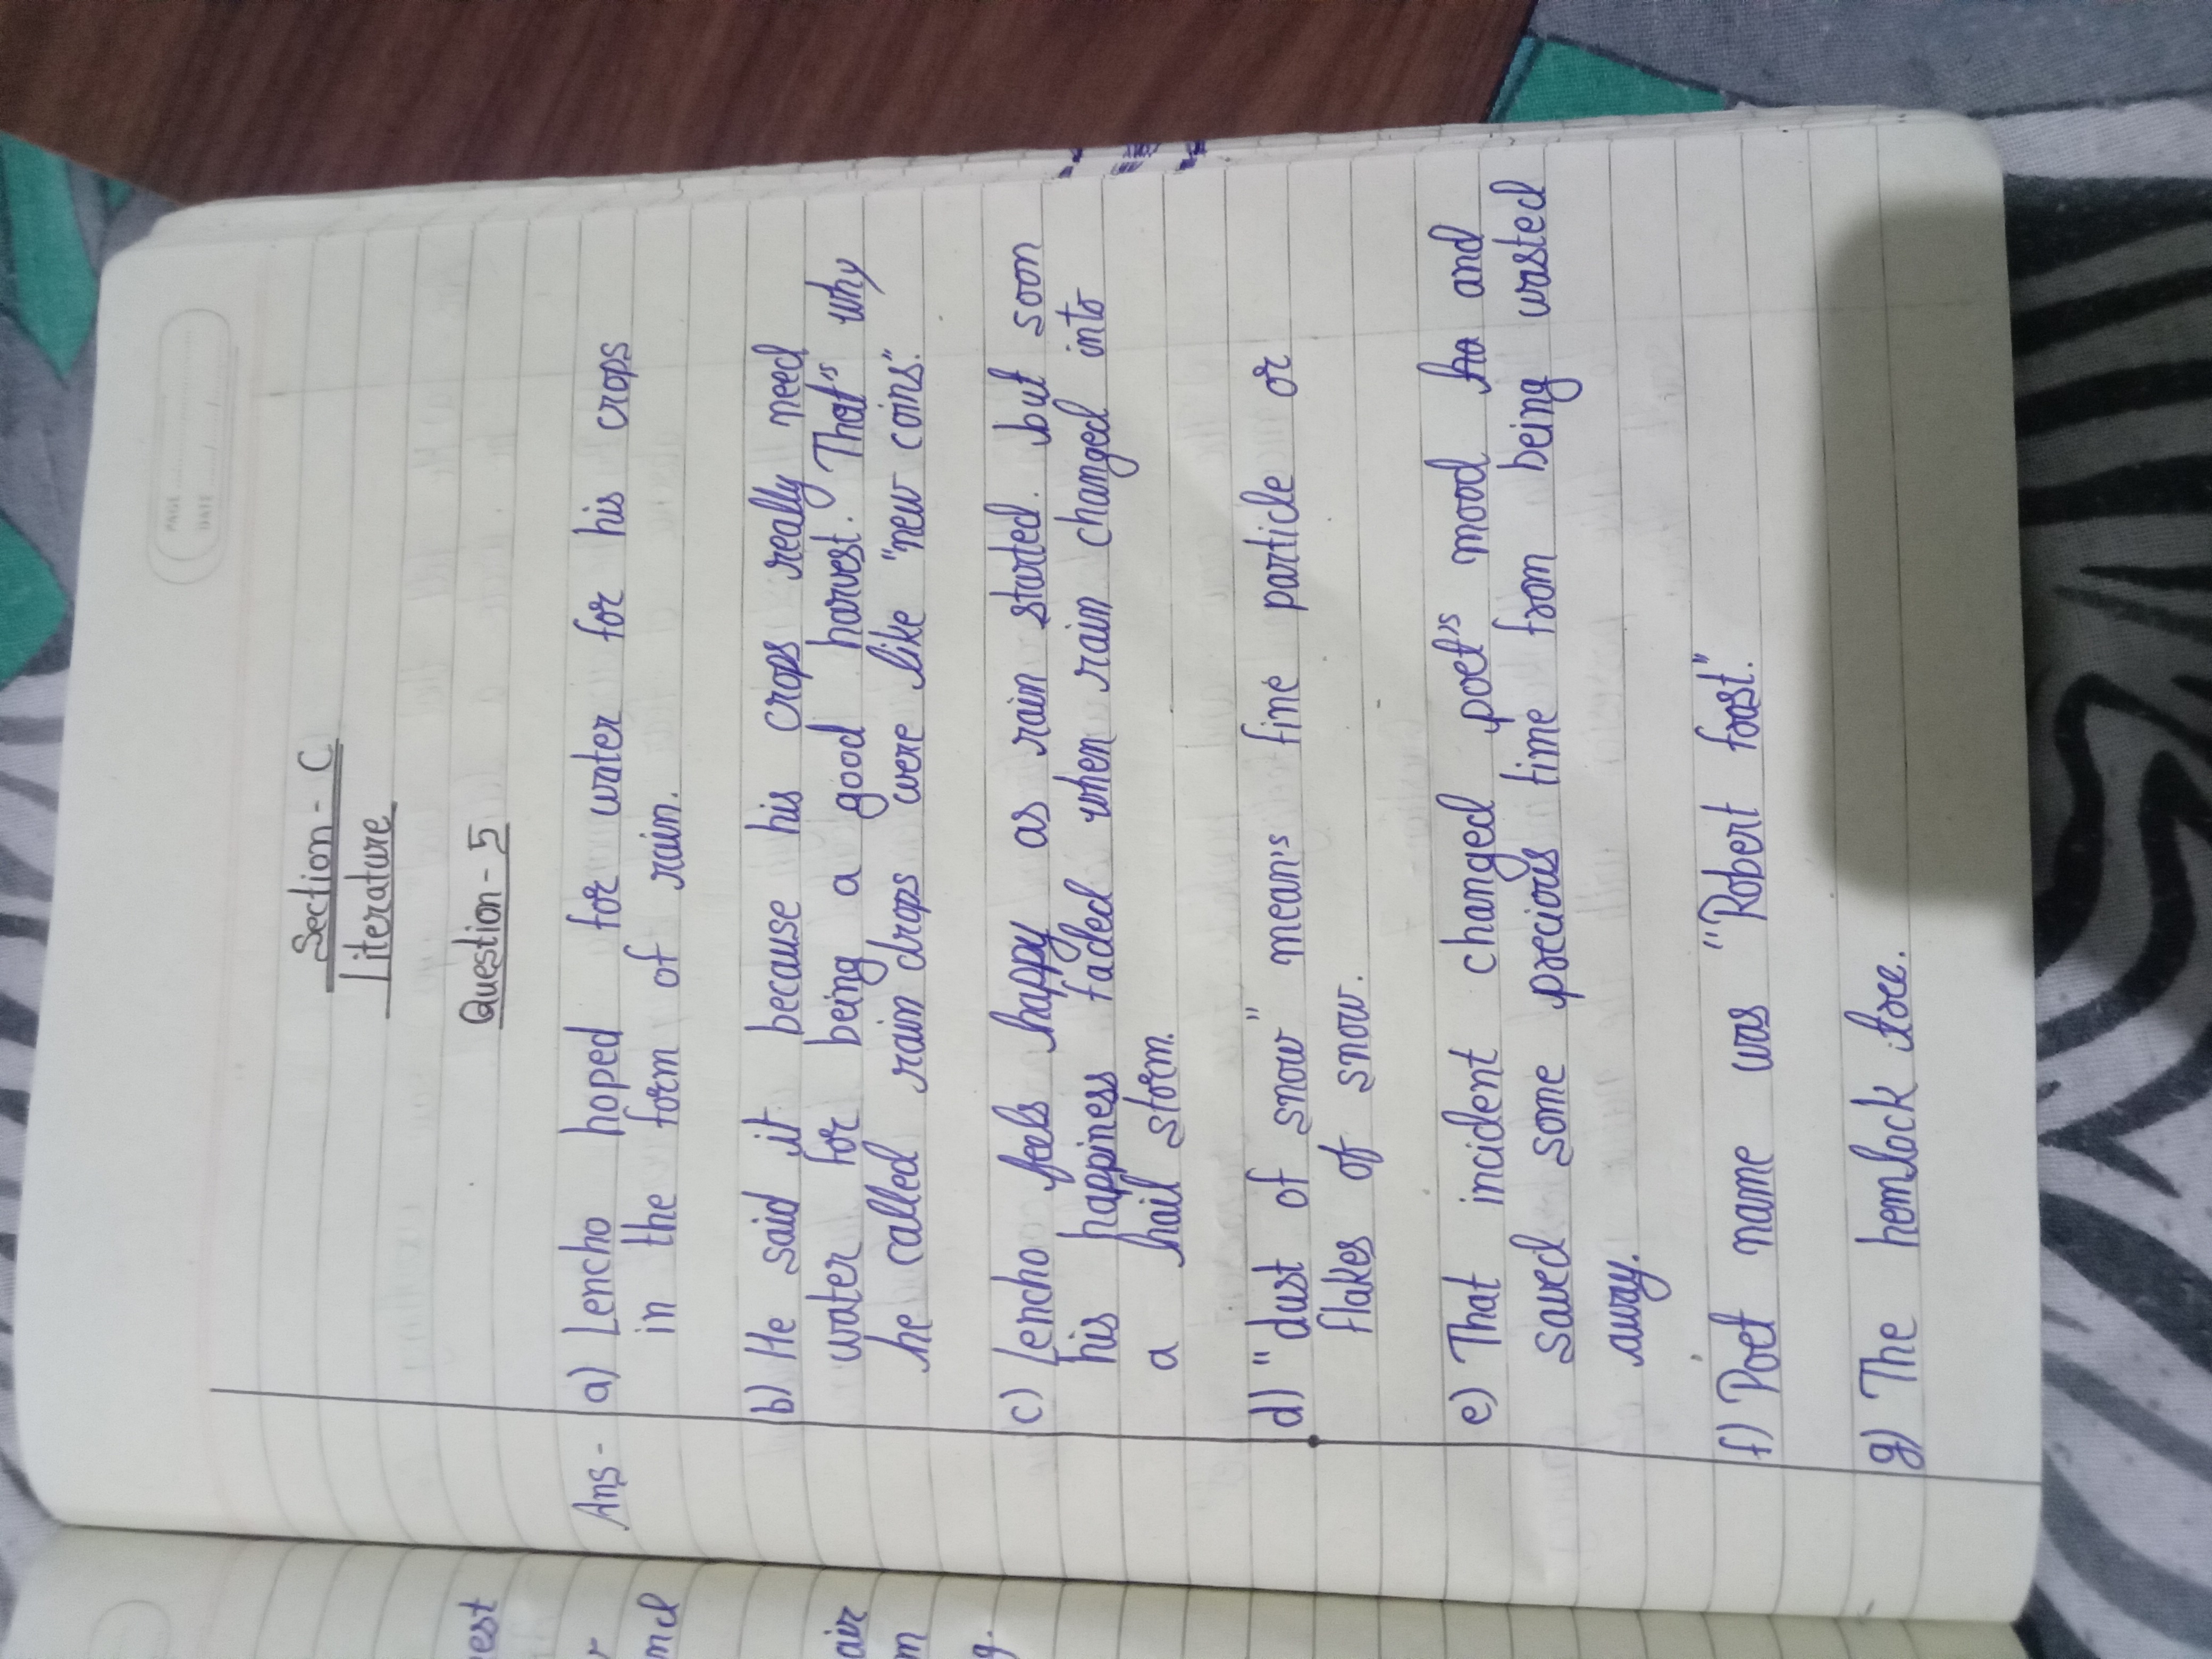 PAGE
DATE
Section - C
Literature
Question - 5
Ans - a) Lencho hoped for water for his crops
in the form of rain.
b) He said it because his crops really need
water for being a good harvest. That's why
he called rain drops were like "new coins".
c) Lencho feels happy as rain started. but soon
his happiness faded when rain changed into
a hail storm.
d) "dust of snow" mean's fine particle or
flakes of snow.
e) That incident changed poet's mood and
saved some precious time from being wasted
away.
f) Poet name was "Robert frost".
g) The hemlock tree.
est
air
m
g.